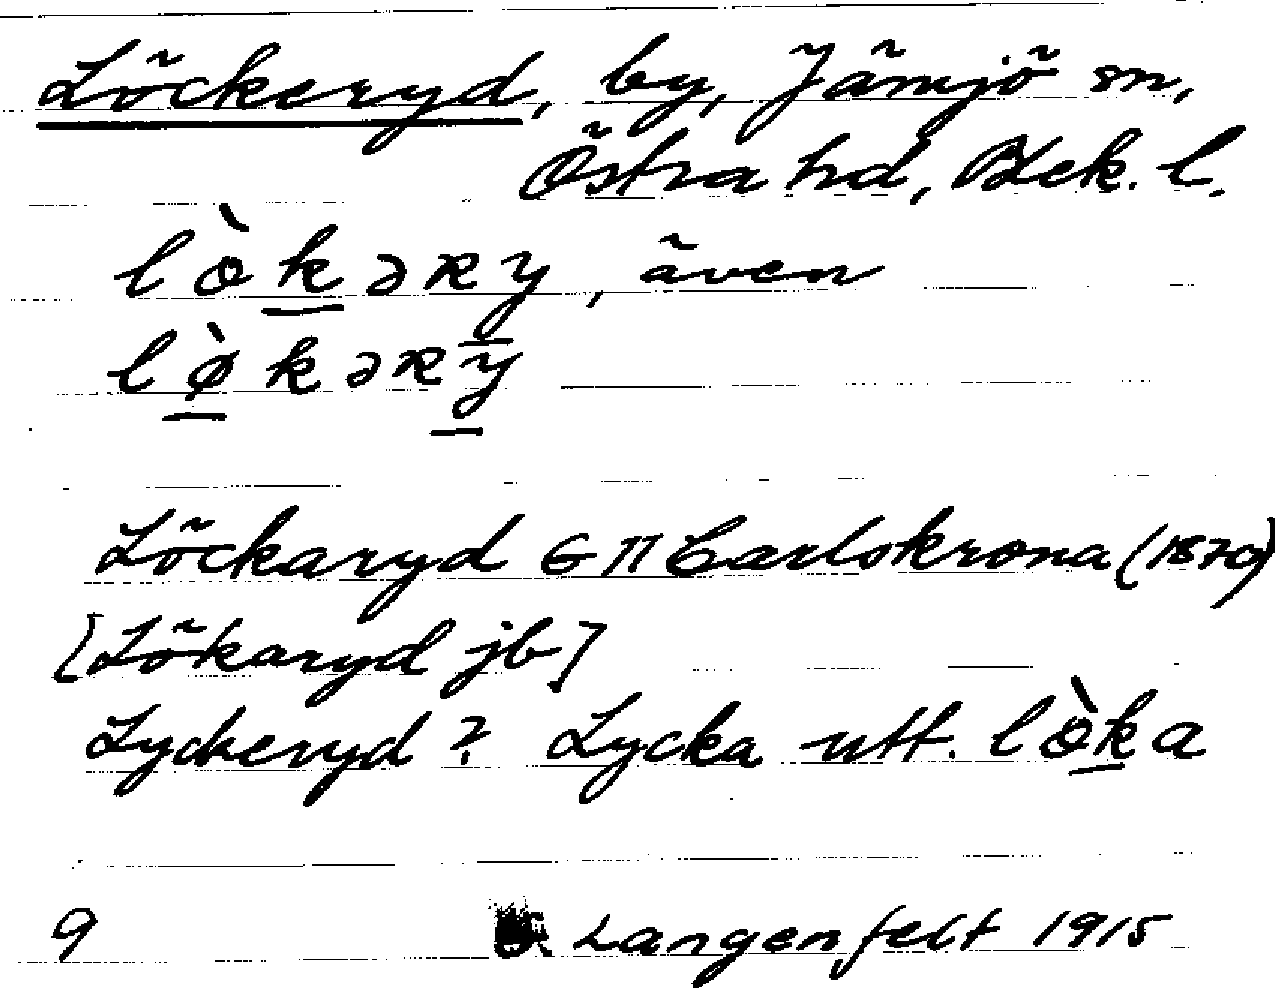 Löckeryd, by, Jämjö sn,
Östra hd, Blek. l.
lòkəRy, även
lø̀kəRy
Löckaryd G II Carlskrona (1870)
[Lökaryd jb]
Lyckeryd? Lycka utt. lòka
9 Langenfelt 1915